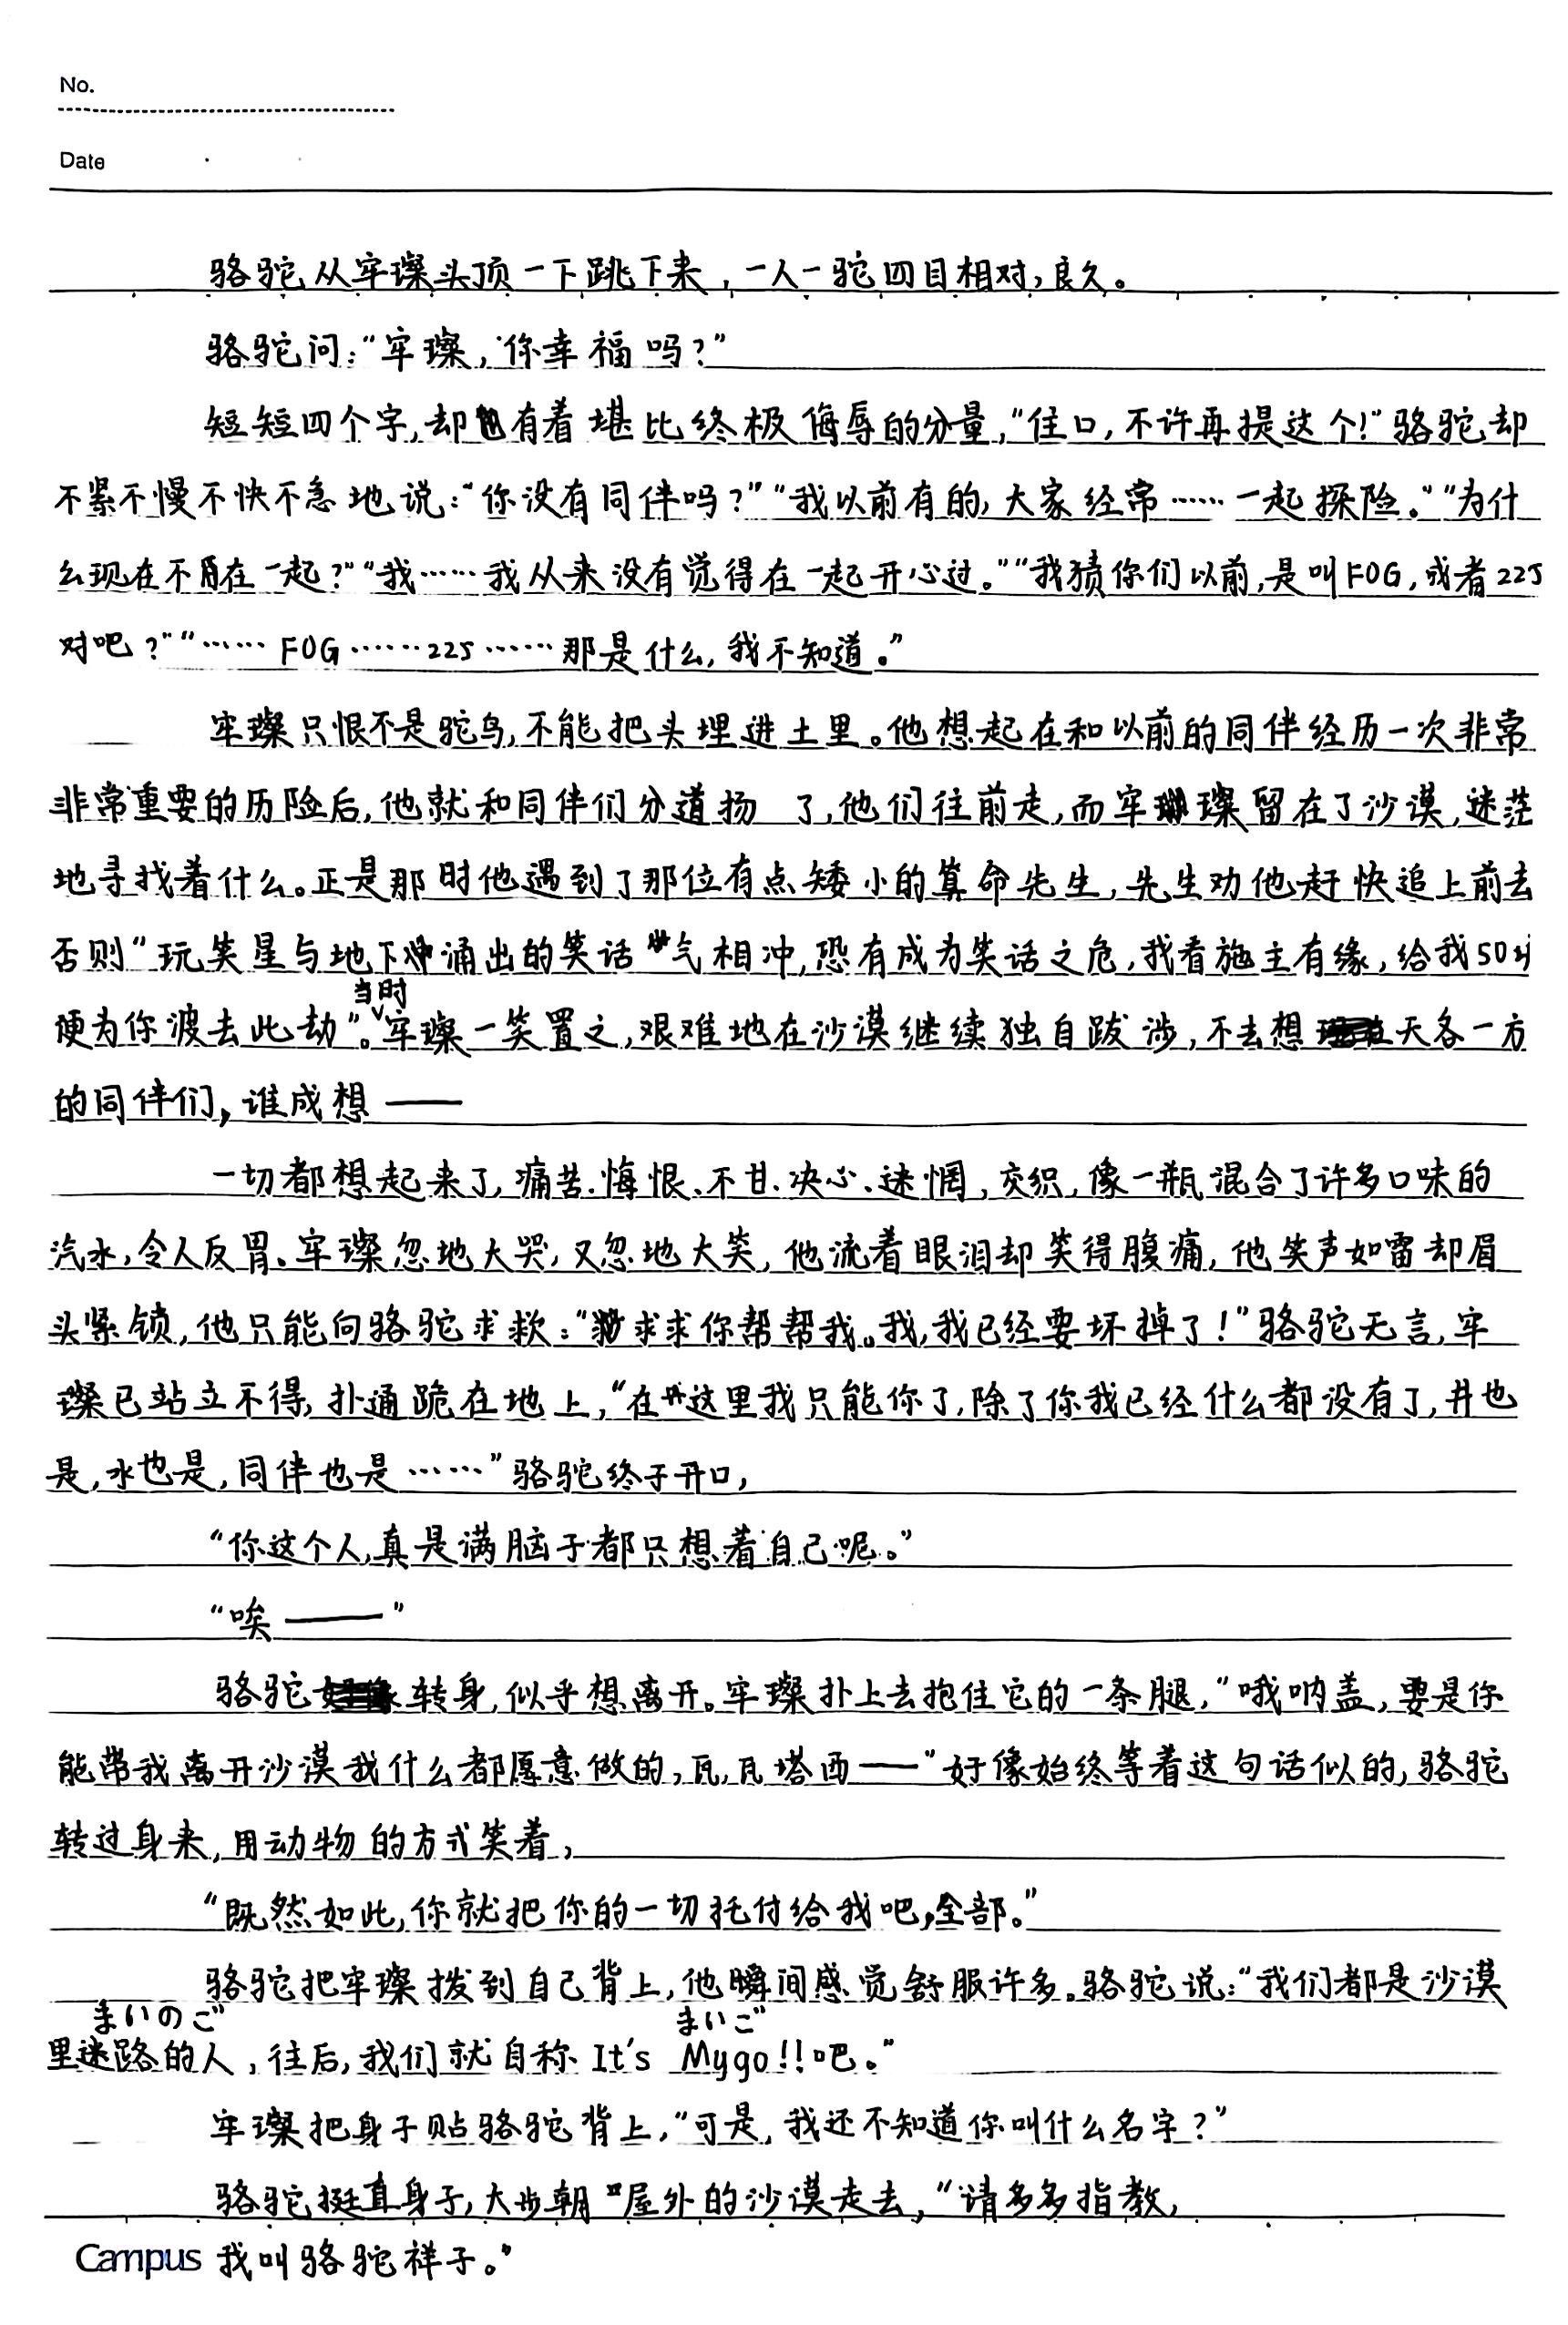 No.
Date
骆驼从牢璨头顶一下跳下来，一人一驼四目相对，良久。
骆驼问：“牢璨，你幸福吗？”
短短四个字，却有着堪比终极侮辱的分量，“住口，不许再提这个！”骆驼却
不紧不慢不快不急地说：“你没有同伴吗？”“我以前有的，大家经常……一起探险。”“为什
么现在不在一起？”“我……我从来没有觉得在一起开心过。”“我猜你们以前，是叫FOG，或者225
对吧？”“……FOG……225……那是什么，我不知道。”
牢璨只恨不是驼鸟，不能把头埋进土里。他想起在和以前的同伴经历一次非常
非常重要的历险后，他就和同伴们分道扬 了，他们往前走，而牢璨留在了沙漠，迷茫
地寻找着什么。正是那时他遇到了那位有点矮小的算命先生，先生劝他赶快追上前去
否则“玩笑星与地下涌出的笑话气相冲，恐有成为笑话之危，我看施主有缘，给我50
便为你波去此劫”。当时牢璨一笑置之，艰难地在沙漠继续独自跋涉，不去想天各一方
的同伴们，谁成想——
一切都想起来了，痛苦、悔恨、不甘、决心、迷惘，交织，像一瓶混合了许多口味的
汽水，令人反胃、牢璨忽地大哭，又忽地大笑，他流着眼泪却笑得腹痛，他笑声如雷却眉
头紧锁，他只能向骆驼求救：“求求你帮帮我。我，我已经要坏掉了！”骆驼无言，牢
璨已站立不得，扑通跪在地上，“在这里我只能你了，除了你我已经什么都没有了，井也
是，水也是，同伴也是……”骆驼终于开口，
“你这个人，真是满脑子都只想着自己呢。”
“唉——”
骆驼转身，似乎想离开。牢璨扑上去抱住它的一条腿，“哦呐盖，要是你
能带我离开沙漠我什么都愿意做的，瓦，瓦塔西——”好像始终等着这句话似的，骆驼
转过身来，用动物的方式笑着，
“既然如此，你就把你的一切托付给我吧，全部。”
骆驼把牢璨拨到自己背上，他瞬间感觉舒服许多。骆驼说：“我们都是沙漠
まいのご まいご
里迷路的人，往后，我们就自称 It's Mygo!!吧。”
牢璨把身子贴骆驼背上，“可是，我还不知道你叫什么名字？”
骆驼挺直身子，大步朝屋外的沙漠走去，“请多多指教，
Campus 我叫骆驼祥子。”